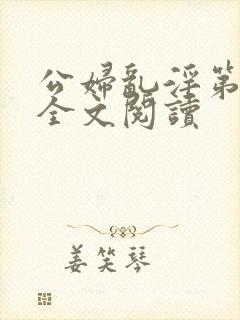 公婦亂淫第
全文閱讀
姜笑琴